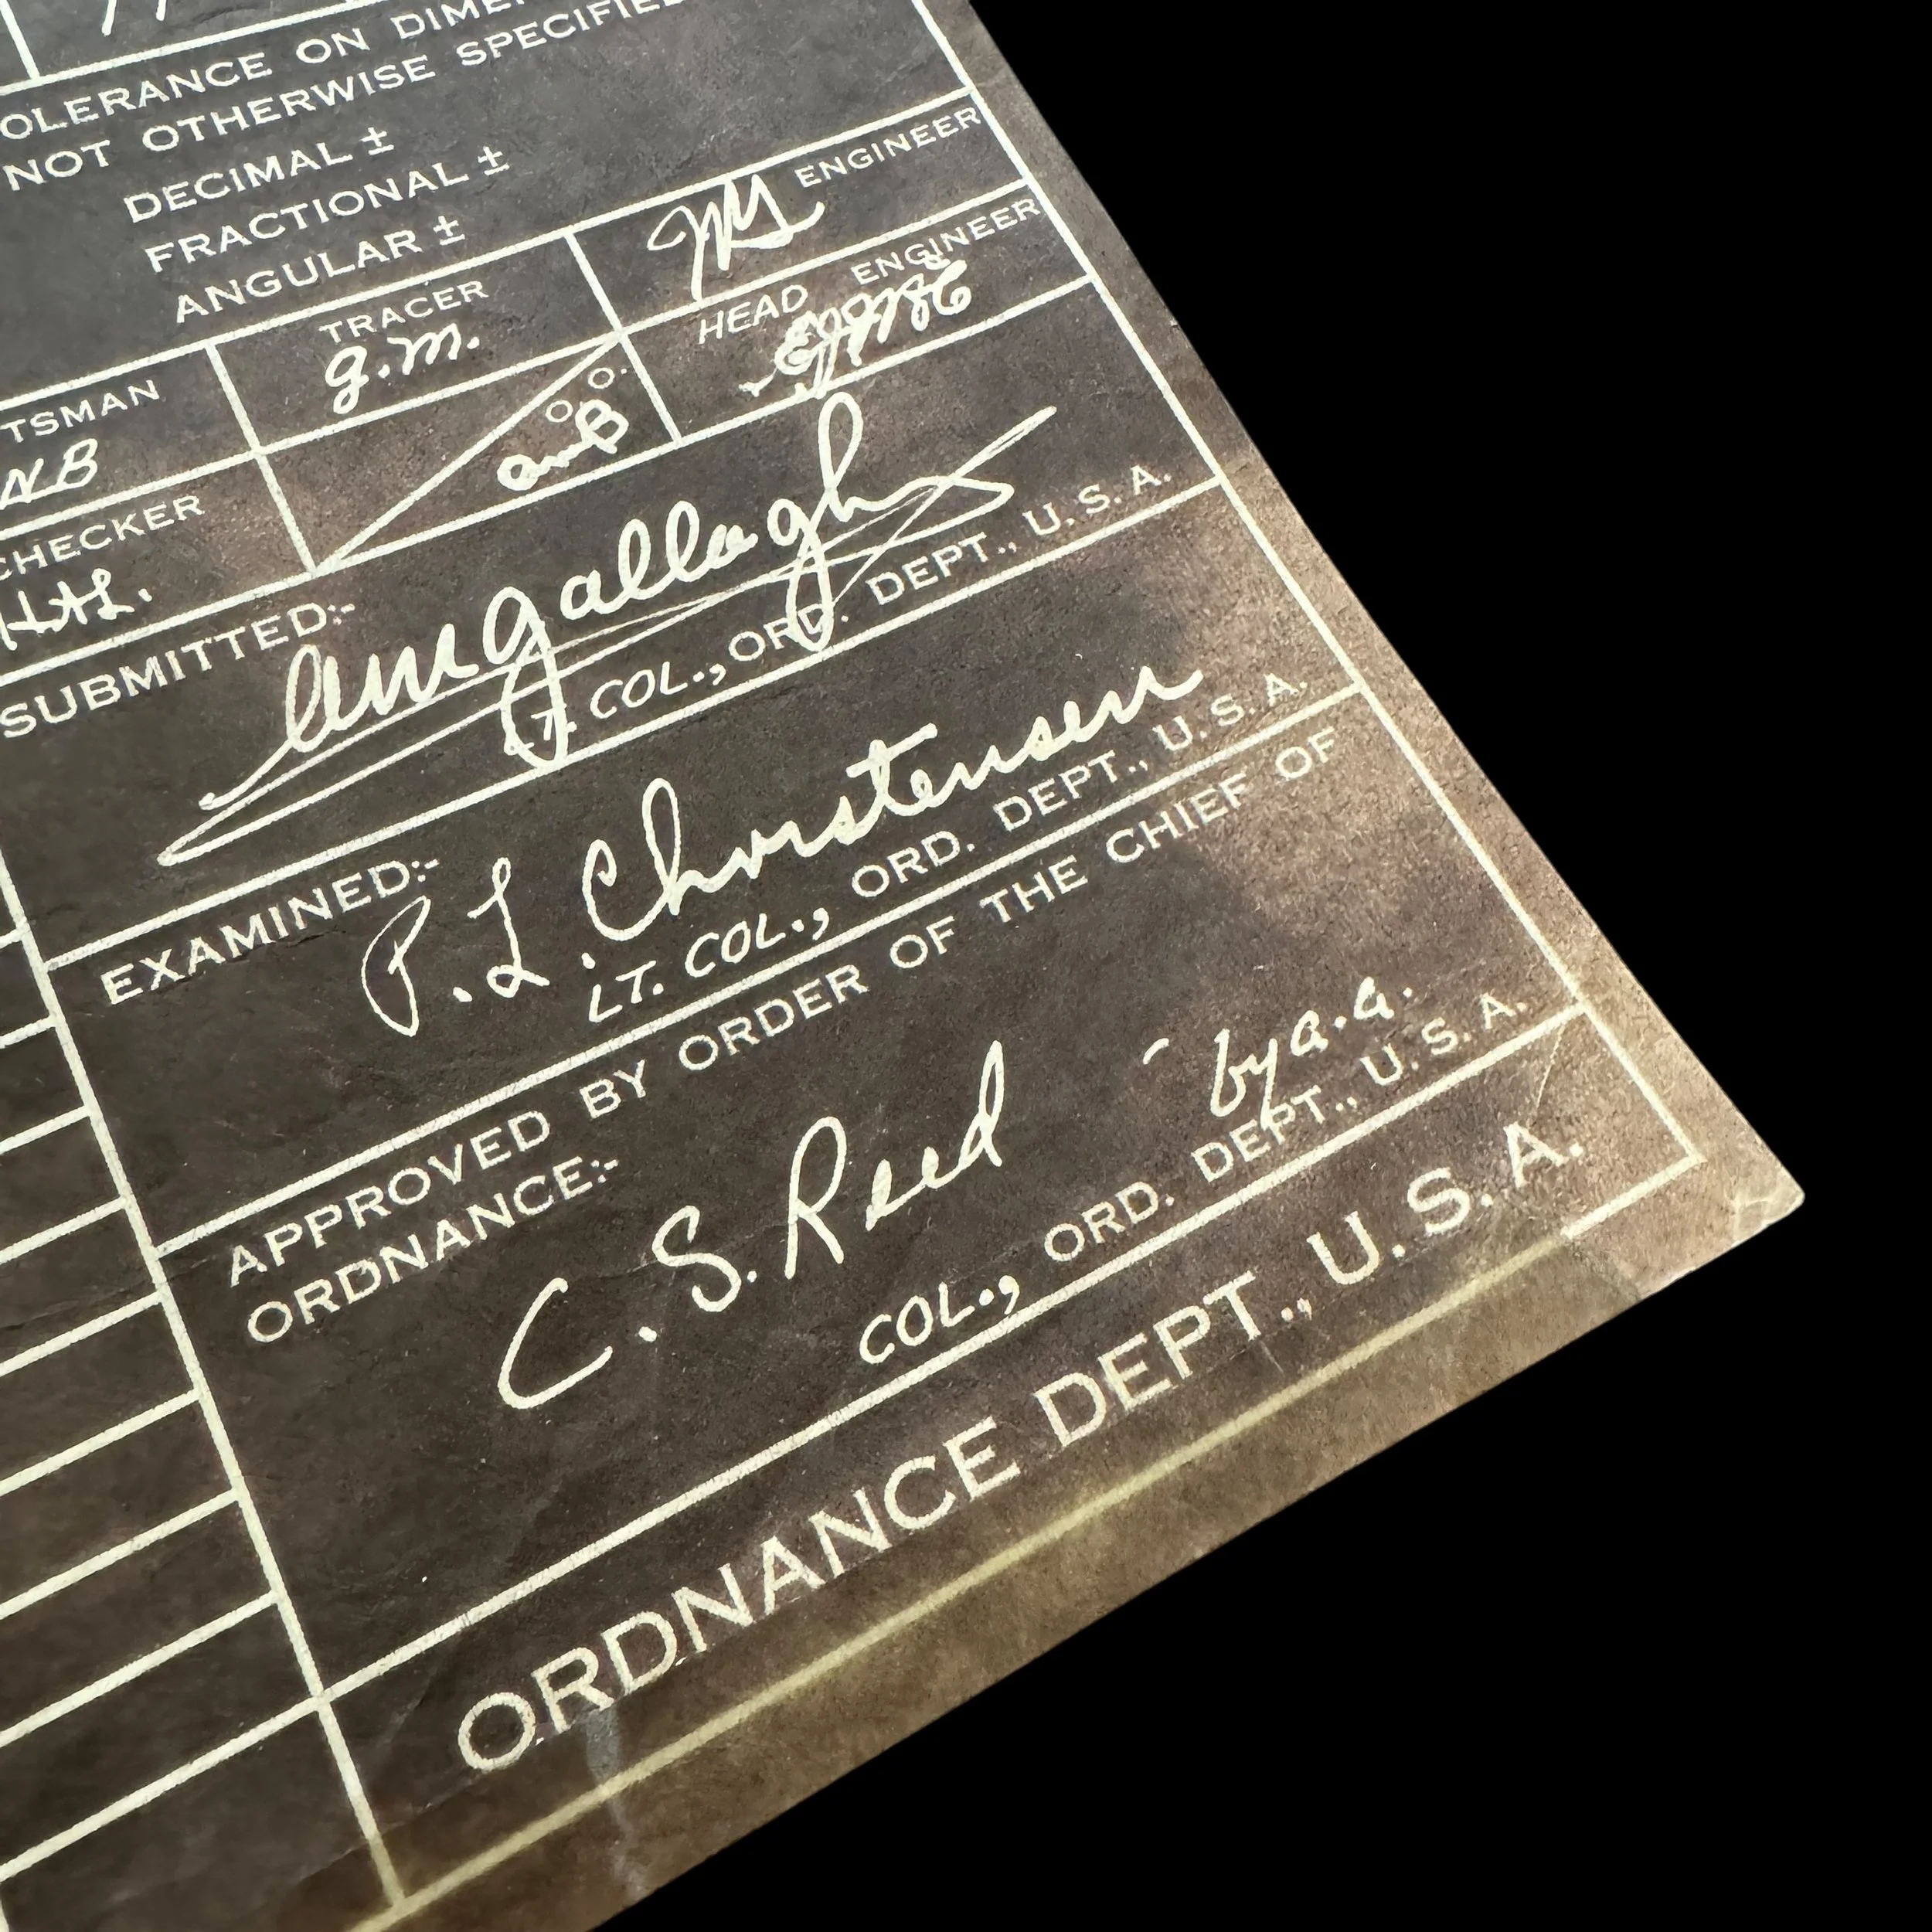 OLERANCE ON DIME
NOT OTHERWISE SPECIFIE
DECIMAL ±
FRACTIONAL ±
ANGULAR ±
TSMAN
NB
TRACER
g.m.
ENGINEER
CHECKER
HAL.
O. O.
amB
HEAD ENGINEER
SUBMITTED:-
amgallagher
LT. COL., ORD. DEPT., U. S. A.
EXAMINED:-
P. L. Christensen
LT. COL., ORD. DEPT., U. S. A.
APPROVED BY ORDER OF THE CHIEF OF
ORDNANCE:-
C. S. Reed - by a.a.
COL., ORD. DEPT., U. S. A.
ORDNANCE DEPT., U. S. A.